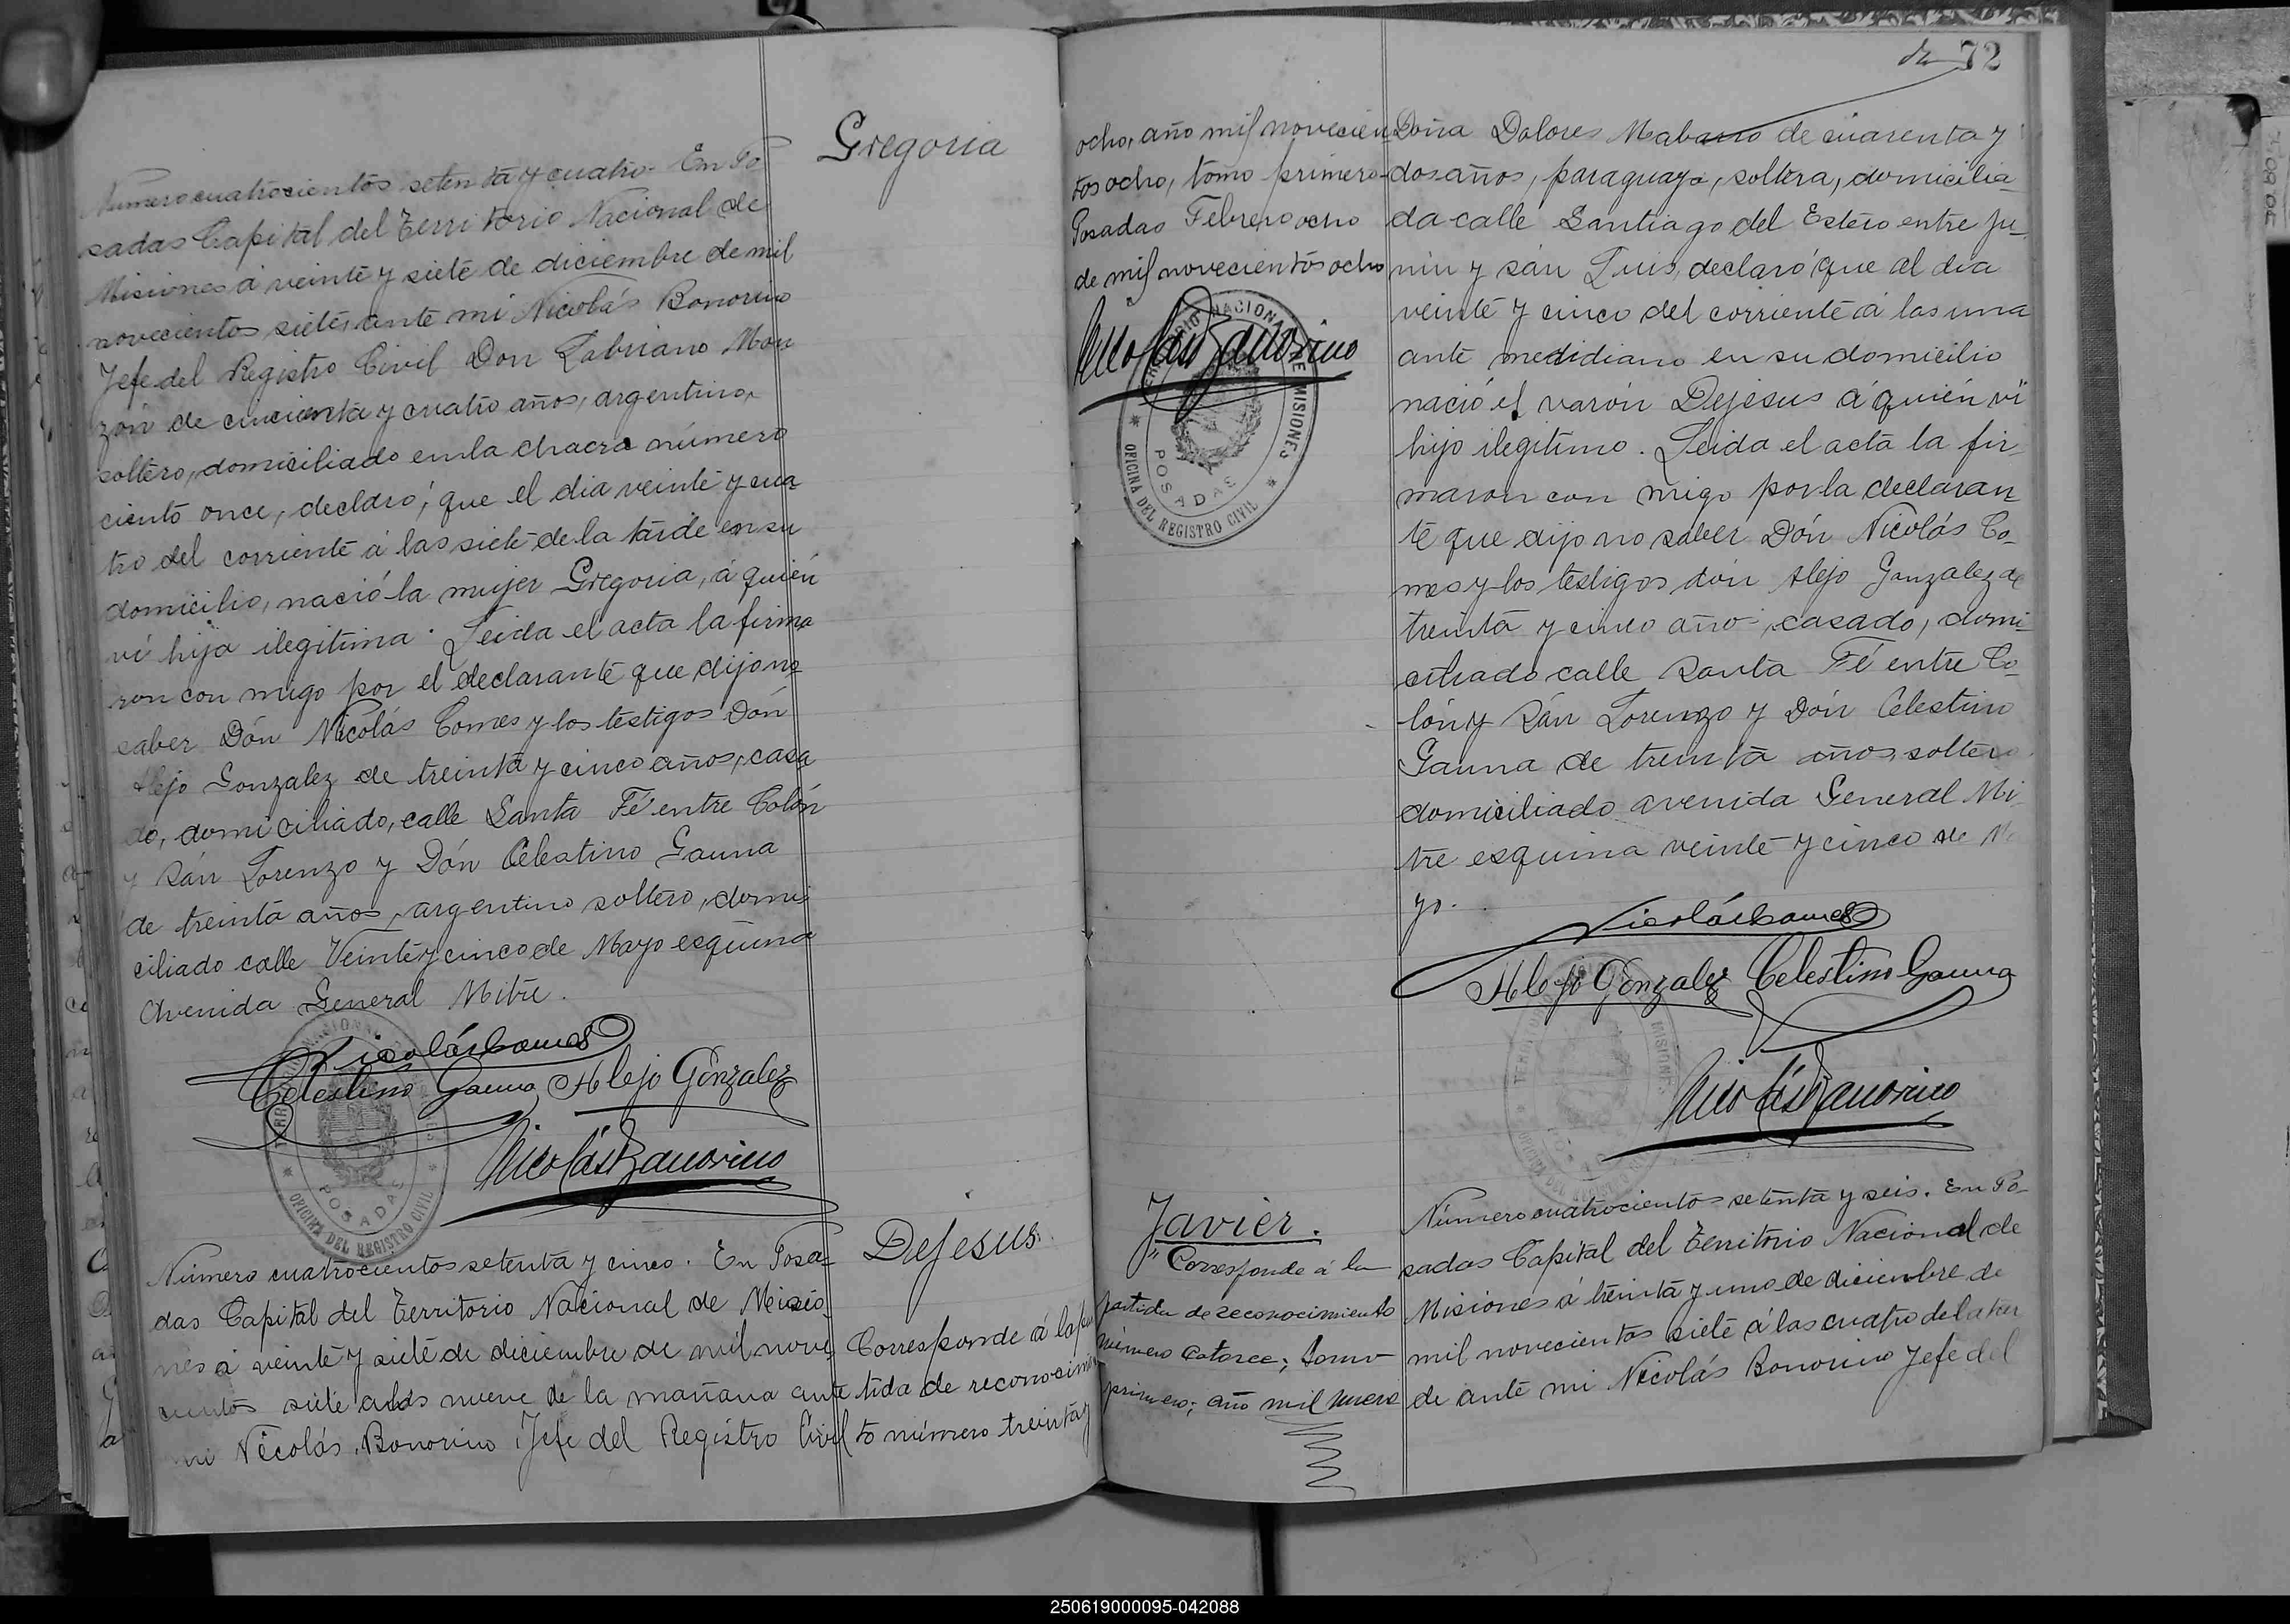 Gregoria
Número cuatrocientos setenta y cuatro. En Po
sadas Capital del Territorio Nacional de
Misiones á veinte y siete de diciembre de mil
novecientos siete, ante mi Nicolás Bonorino
Jefe del Registro Civil Don Labriano Mon
zón de cincuenta y cuatro años, argentino,
soltero, domiciliado en la chacra número
ciento once, declaró; que el dia veinte y cua
tro del corriente á las siete de la tarde en su
domicilio, nació la mujer Gregoria, á quién
ví hija ilegitima. Leida el acta la firma
ron con migo por el declarante que dijo no
saber Dón Nicolás Comes y los testigos Dón
Alejo Gonzalez de treinta y cinco años, casa
do, domiciliado, calle Santa Fé entre Colón
y Sán Lorenzo y Dón Celestino Gauna
de treinta años, argentino soltero, domi
ciliado calle Veinte y cinco de Mayo esquina
Avenida General Mitre.
Nicolás Comes
Celestino Gauna Alejo Gonzalez
Nicolás Bonorino
TERRITORIO NACIONAL DE MISIONES
POSADAS
OFICINA DEL REGISTRO CIVIL
Dejesus.
Número cuatrocientos setenta y cinco. En Posa-
das Capital del Territorio Nacional de Misio
nes á veinte y siete de diciembre de mil nove
cientos siete a las nueve de la mañana ante
mi Nicolás Bonorino Jefe del Registro Civil
Corresponde á la par
tida de reconocimien
to número treinta y
72
ocho, año mil novecien
tos ocho, tomo primero-
Posadas Febrero ocho
de mil novecientos ocho
Nicolás Bonorino
TERRITORIO NACIONAL DE MISIONES
POSADAS
OFICINA DEL REGISTRO CIVIL
Doña Dolores de cuarenta y
dos años, paraguaya, soltera, domicilia
da calle Santiago del Estero entre Ju-
nin y sán Luis, declaró que el dia
veinte y cinco del corriente á las una
ante medidiano en su domicilio
nació el varón Dejesus á quién ví
hijo ilegitimo. Leida el acta la fir
maron con migo por la declaran
te que dijo no saber Dón Nicolás Co-
mes y los testigos dón Alejo Gonzalez de
treinta y cinco año, casado, domi-
ciliado calle Santa Fé entre Co-
lón y Sán Lorenzo y Dón Celestino
Gauna de treinta años, soltero
domiciliado avenida General Mi
tre esquina veinte y cinco de Ma
yo.
Nicolás Comes
Alejo Gonzalez Celestino Gauna
Nicolás Bonorino
Javier.
Corresponde á la
partida de reconocimiento
número catorce; tomo
primero; año mil nueve
Número cuatrocientos setenta y seis. En Po-
sadas Capital del Territorio Nacional de
Misiones á treinta y uno de diciembre de
mil novecientos siete á las cuatro de la tar
de ante mi Nicolás Bonorino Jefe del
250619000095-042088